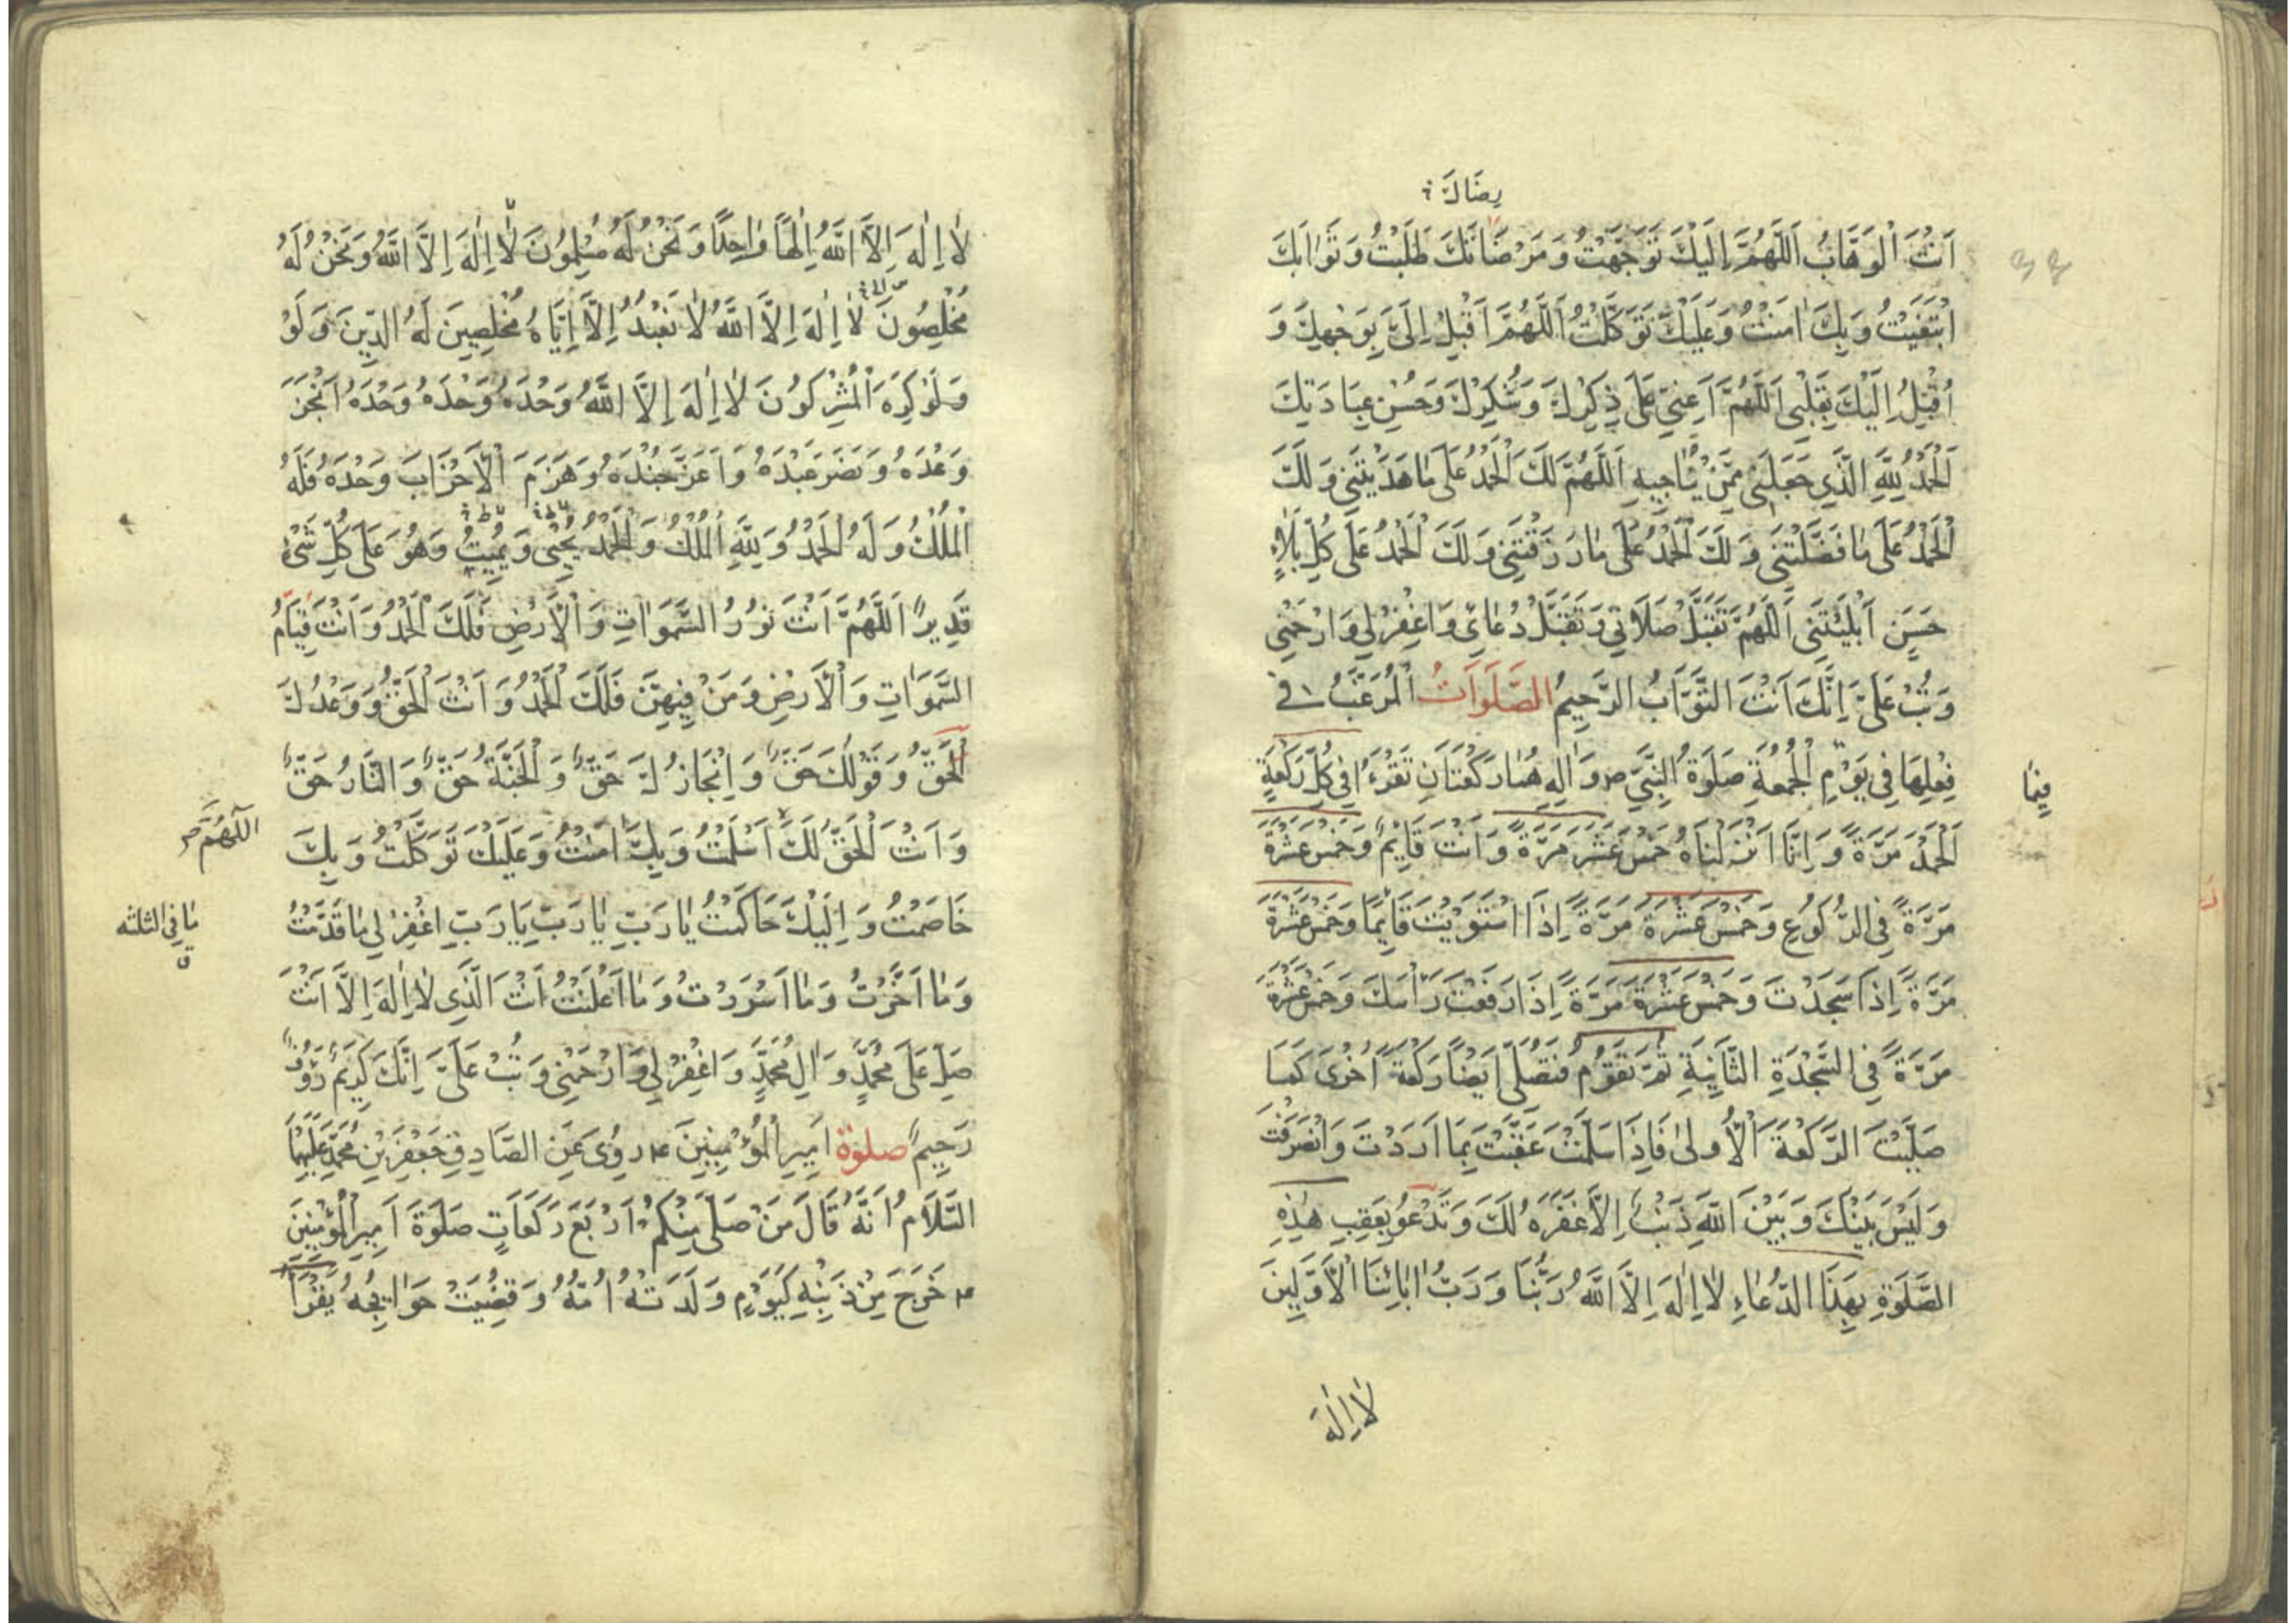 رِضَاكَ
اَنْتَ الْوَهَّابُ اَللّٰهُمَّ اِلَيْكَ تَوَجَّهْتُ وَمَرْضَاتَكَ طَلَبْتُ وَثَوَابَكَ
ابْتَغَيْتُ وَبِكَ اٰمَنْتُ وَعَلَيْكَ تَوَكَّلْتُ اَللّٰهُمَّ اَقْبِلْ اِلَىَّ بِوَجْهِكَ وَ
اُقْبِلُ اِلَيْكَ بِقَلْبِى اَللّٰهُمَّ اَعِنِّى عَلٰى ذِكْرِكَ وَشُكْرِكَ وَحُسْنِ عِبَادَتِكَ
اَلْحَمْدُ لِلّٰهِ الَّذِى جَعَلَنِى مِمَّنْ يُنَاجِيهِ اَللّٰهُمَّ لَكَ الْحَمْدُ عَلٰى مَا هَدَيْتَنِى وَلَكَ
الْحَمْدُ عَلٰى مَا فَضَّلْتَنِى وَلَكَ الْحَمْدُ عَلٰى مَا رَزَقْتَنِى وَلَكَ الْحَمْدُ عَلٰى كُلِّ بَلَاءٍ
حَسَنٍ اَبْلَيْتَنِى اَللّٰهُمَّ تَقَبَّلْ صَلَاتِى وَتَقَبَّلْ دُعَائِى وَاغْفِرْ لِى وَارْحَمْنِى
وَتُبْ عَلَىَّ اِنَّكَ اَنْتَ التَّوَّابُ الرَّحِيمُ الصَّلَوَاتُ الْمُرَغَّبُ فِى
فِعْلِهَا فِى يَوْمِ الْجُمُعَةِ صَلَوةُ النَّبِىِّ ص وَاٰلِهِ هُمَا رَكْعَتَانِ تَقْرَءُ فِى كُلِّ رَكْعَةٍ
فيها
اَلْحَمْدَ مَرَّةً وَاِنَّا اَنْزَلْنَاهُ خَمْسَ عَشَرَ مَرَّةً وَاَنْتَ قَائِمٌ وَخَمْسَ عَشْرَةَ
مَرَّةً فِى الرُّكُوعِ وَخَمْسَ عَشْرَةَ مَرَّةً اِذَا اسْتَوَيْتَ قَائِمًا وَخَمْسَ عَشْرَةَ
مَرَّةً اِذَا سَجَدْتَ وَخَمْسَ عَشْرَةَ مَرَّةً اِذَا رَفَعْتَ رَاْسَكَ وَخَمْسَ عَشْرَةَ
مَرَّةً فِى السَّجْدَةِ الثَّانِيَةِ ثُمَّ تَقُومُ فَتُصَلِّى اَيْضًا رَكْعَةً اُخْرٰى كَمَا
صَلَّيْتَ الرَّكْعَةَ الْاُولٰى فَاِذَا سَلَّمْتَ عَقَّبْتَ بِمَا اَرَدْتَ وَانْصَرَفْتَ
وَلَيْسَ بَيْنَكَ وَبَيْنَ اللّٰهِ ذَنْبٌ اِلَّا غَفَرَهُ لَكَ وَتَدْعُو بِعَقِبِ هٰذِهِ
الصَّلَوةِ بِهٰذَا الدُّعَاءِ لَا اِلٰهَ اِلَّا اللّٰهُ رَبُّنَا وَرَبُّ اٰبَائِنَا الْاَوَّلِينَ
لَا اِلٰهَ
لَا اِلٰهَ اِلَّا اللّٰهُ اِلٰهًا وَاحِدًا وَنَحْنُ لَهُ مُسْلِمُونَ لَا اِلٰهَ اِلَّا اللّٰهُ وَنَحْنُ لَهُ
مُخْلِصُونَ لَا اِلٰهَ اِلَّا اللّٰهُ لَا نَعْبُدُ اِلَّا اِيَّاهُ مُخْلِصِينَ لَهُ الدِّينَ وَلَوْ
وَلَوْ كَرِهَ الْمُشْرِكُونَ لَا اِلٰهَ اِلَّا اللّٰهُ وَحْدَهُ وَحْدَهُ وَحْدَهُ اَنْجَزَ
وَعْدَهُ وَنَصَرَ عَبْدَهُ وَاَعَزَّ جُنْدَهُ وَهَزَمَ الْاَحْزَابَ وَحْدَهُ فَلَهُ
الْمُلْكُ وَلَهُ الْحَمْدُ وَلِلّٰهِ الْمُلْكُ وَالْحَمْدُ يُحْيِى وَيُمِيتُ وَهُوَ عَلٰى كُلِّ شَىْءٍ
قَدِيرٌ اَللّٰهُمَّ اَنْتَ نُورُ السَّمٰوَاتِ وَالْاَرْضِ فَلَكَ الْحَمْدُ وَاَنْتَ قِيَامُ
السَّمٰوَاتِ وَالْاَرْضِ وَمَنْ فِيهِنَّ فَلَكَ الْحَمْدُ وَاَنْتَ الْحَقُّ وَوَعْدُكَ
الْحَقُّ وَقَوْلُكَ حَقٌّ وَاِنْجَازُكَ حَقٌّ وَالْجَنَّةُ حَقٌّ وَالنَّارُ حَقٌّ
اَللّٰهُمَّ
وَاَنْتَ الْحَقُّ لَكَ اَسْلَمْتُ وَبِكَ اٰمَنْتُ وَعَلَيْكَ تَوَكَّلْتُ وَبِكَ
خَاصَمْتُ وَاِلَيْكَ حَاكَمْتُ يَا رَبِّ يَا رَبِّ يَا رَبِّ اغْفِرْ لِى مَا قَدَّمْتُ
يا فى الثلثه
وَمَا اَخَّرْتُ وَمَا اَسْرَرْتُ وَمَا اَعْلَنْتُ اَنْتَ الَّذِى لَا اِلٰهَ اِلَّا اَنْتَ
صَلِّ عَلٰى مُحَمَّدٍ وَاٰلِ مُحَمَّدٍ وَاغْفِرْ لِى وَارْحَمْنِى وَتُبْ عَلَىَّ اِنَّكَ كَرِيمٌ رَؤُفٌ
رَحِيمٌ صلوة اَمِيرِ الْمُؤْمِنِينَ ع رُوِىَ عَنِ الصَّادِقِ جَعْفَرِ بْنِ مُحَمَّدٍ عَلَيْهِمَا
السَّلَامُ اَنَّهُ قَالَ مَنْ صَلّٰى مِنْكُمْ اَرْبَعَ رَكَعَاتٍ صَلَوةَ اَمِيرِ الْمُؤْمِنِينَ
ع خَرَجَ مِنْ ذَنْبِهِ كَيَوْمٍ وَلَدَتْهُ اُمُّهُ وَقُضِيَتْ حَوَائِجُهُ يَقْرَاُ